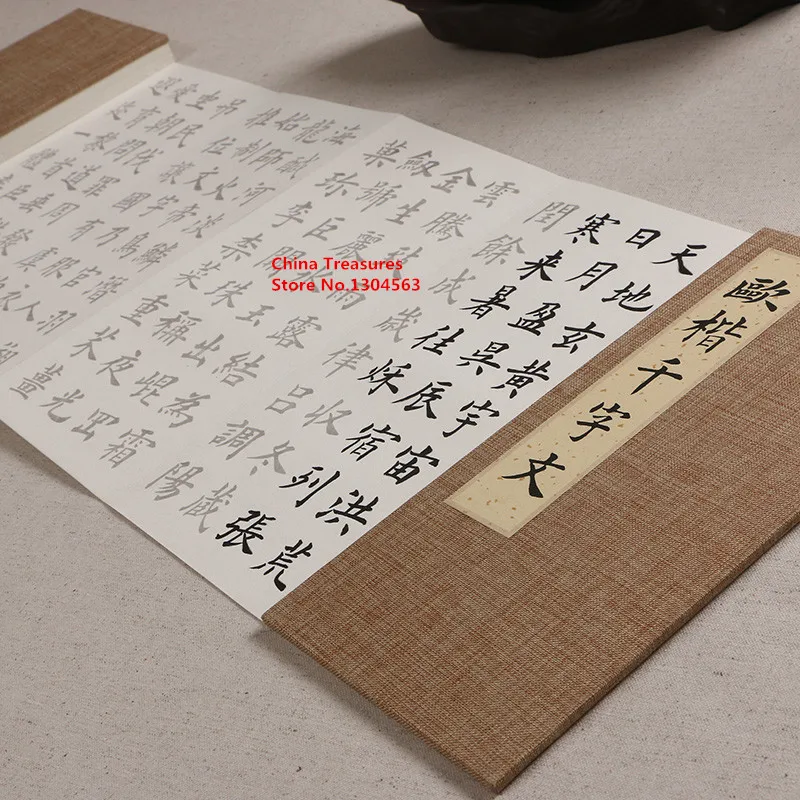 歐楷千字文
天地玄黄宇宙洪荒
日月盈昃辰宿列張
寒来暑往秌收冬蔵
閏餘成歳律吕調陽
雲騰致雨露結為霜
金生麗水玉出崐岡
劔號巨闕珠稱夜光
菓珍李柰菜重芥薑
海鹹河淡鱗潛羽翔
龍師火帝鳥官人
始制文字乃服衣
推位讓國有虞
弔民伐罪周發
坐朝問道
愛育黎首臣
遐迩一體
China Treasures
Store No.1304563